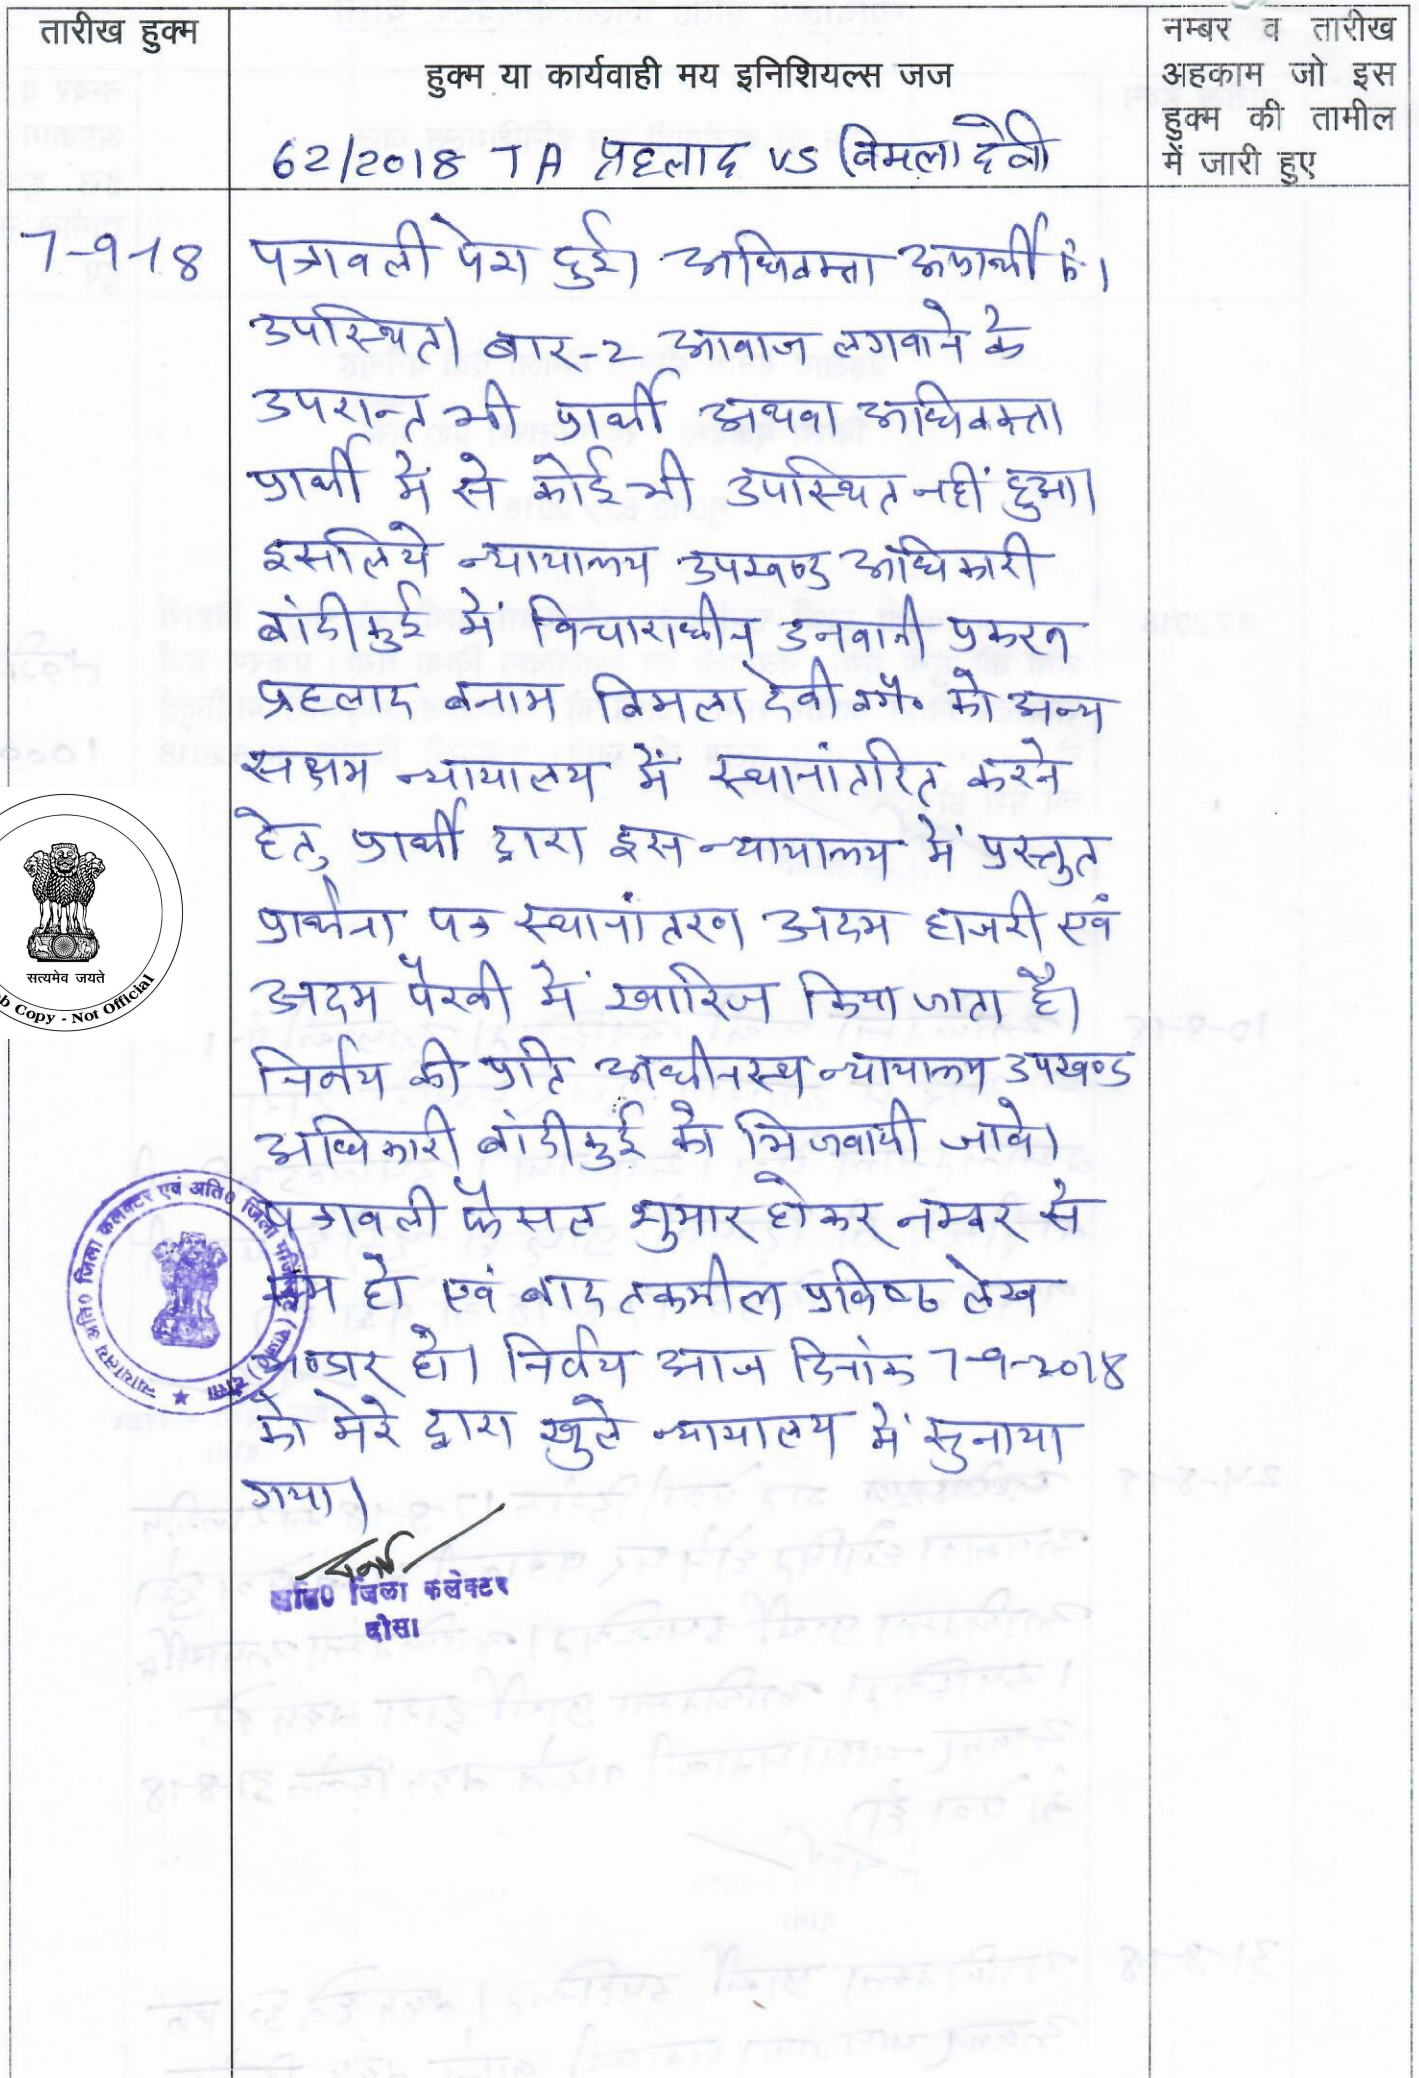 तारीख हुक्म
हुक्म या कार्यवाही मय इनिशियल्स जज
नम्बर व तारीख
अहकाम जो इस
हुक्म की तामील
में जारी हुए
62/2018 TA प्रहलाद vs विमला देवी
7-9-18
पत्रावली पेश हुई। अधिवक्ता अप्रार्थी सं।
उपस्थित। बार-2 आवाज लगवाने के
उपरान्त भी प्रार्थी अथवा अधिवक्ता
प्रार्थी में से कोई भी उपस्थित नहीं हुआ।
इसलिये न्यायालय उपखण्ड अधिकारी
बांदीकुई में विचाराधीन उनवानी प्रकरण
प्रहलाद बनाम विमला देवी वगै० को अन्य
सक्षम न्यायालय में स्थानांतरित करने
हेतु प्रार्थी द्वारा इस न्यायालय में प्रस्तुत
प्रार्थना पत्र स्थानांतरण अदम हाजरी एवं
अदम पैरवी में खारिज किया जाता है।
निर्णय की प्रति अधीनस्थ न्यायालय उपखण्ड
अधिकारी बांदीकुई को भिजवायी जावे।
पत्रावली फैसल शुमार होकर नम्बर से
कम हो एवं बाद तकमील प्रविष्ठ लेख
भण्डार हो। निर्णय आज दिनांक 7-9-2018
को मेरे द्वारा खुले न्यायालय में सुनाया
गया।
अति0 जिला कलेक्टर
दौसा
सत्यमेव जयते
Copy - Not Official
न्यायालय अति0 जिला कलक्टर एवं अति0 जिला